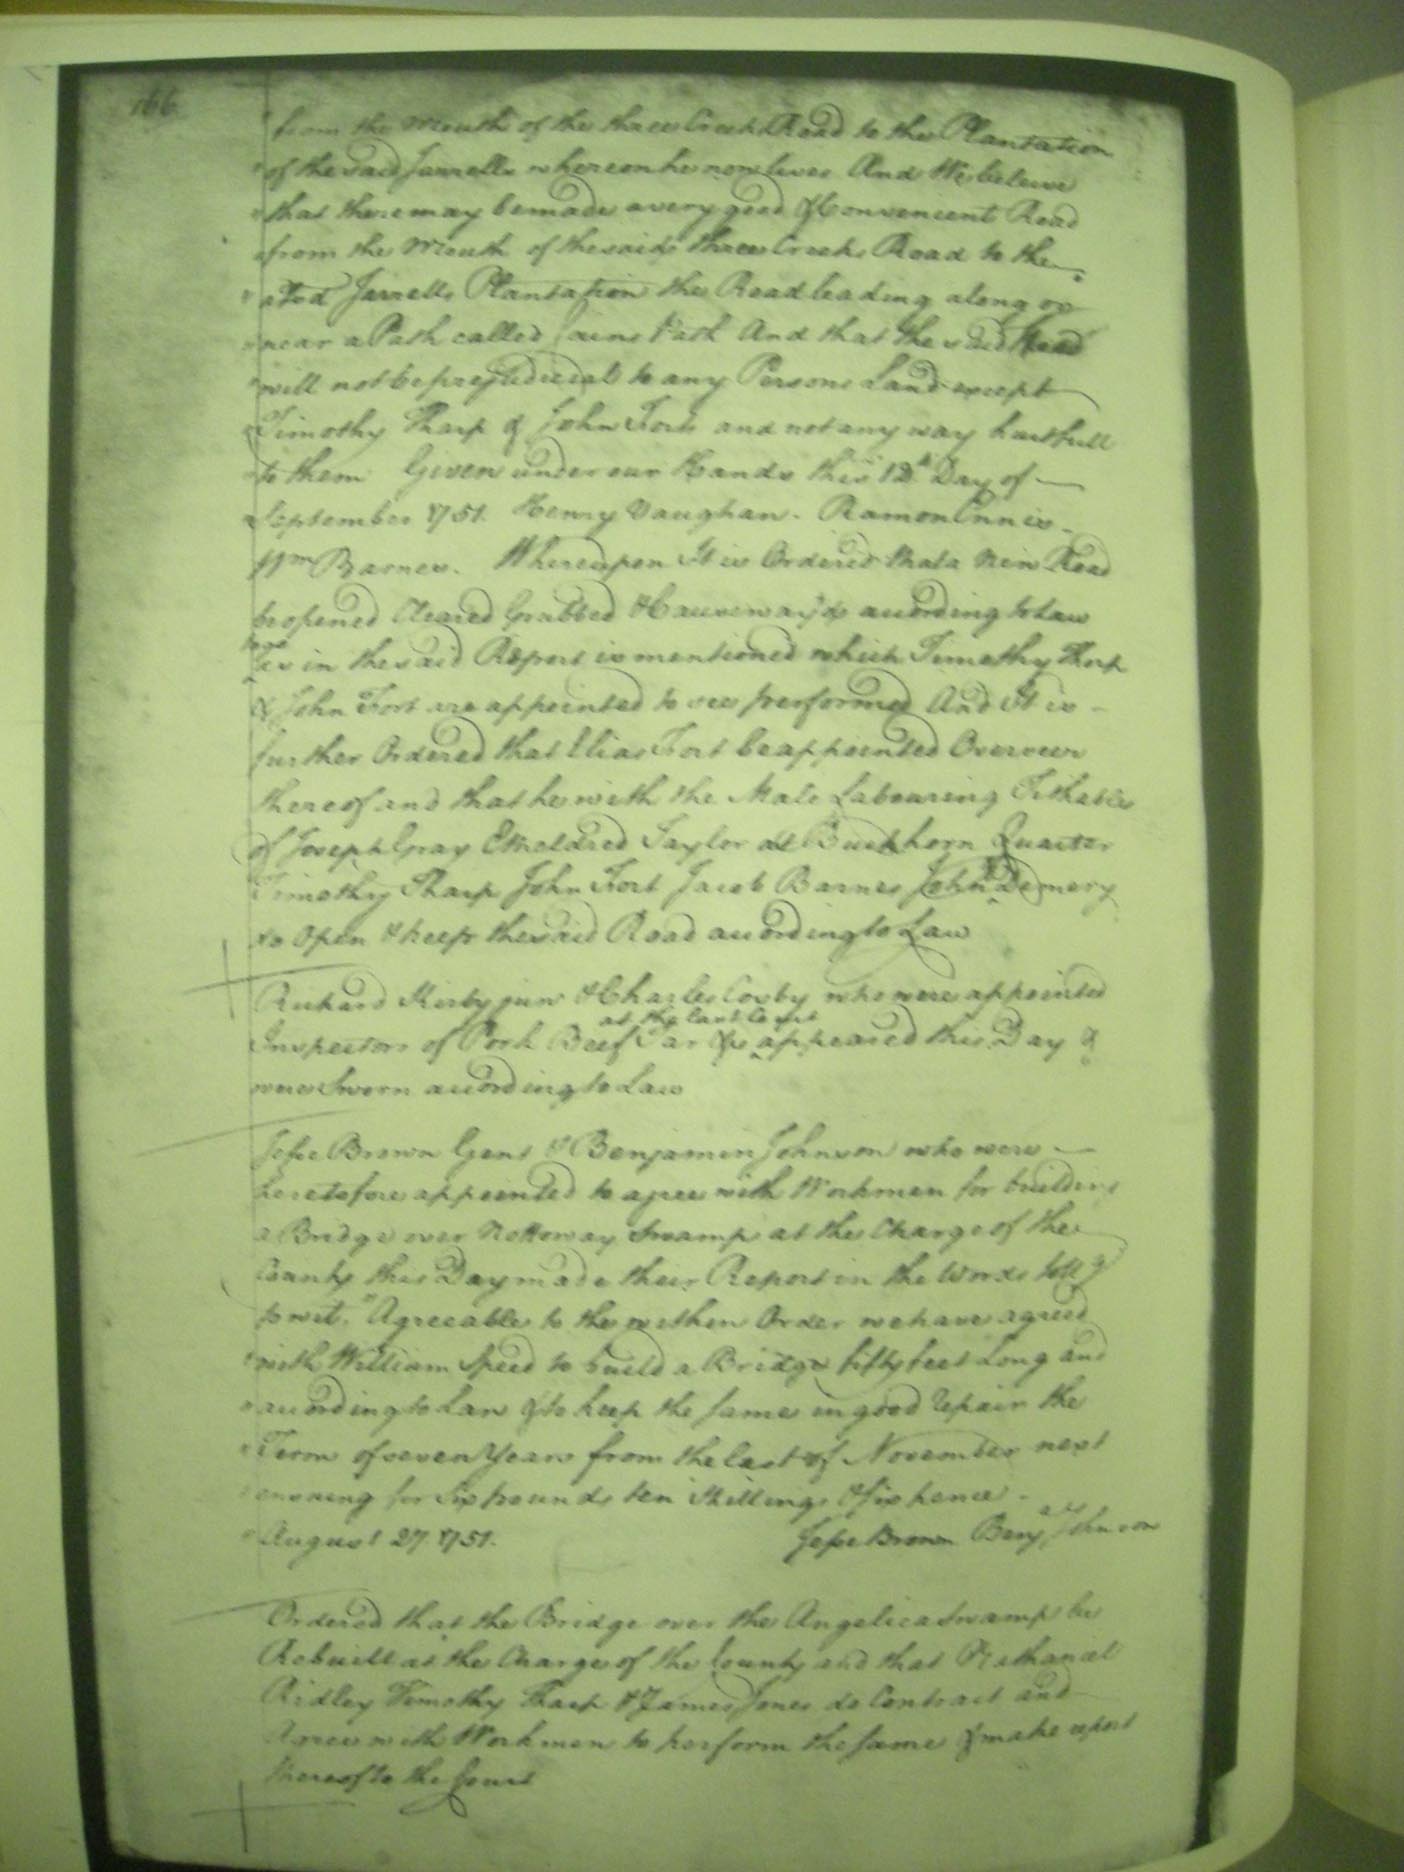 166
" from the Mouth of the three Creek Road to the Plantation
" of the said Jarrells whereon he now lives And We beleive
" that there may be made a very good & Convenient Road
" from the Mouth of the said three Creeks Road to the
" afsd Jarrells Plantation the Road leading along or
" near a Path called Path And that the said Road
" will not be prejudicial to any Persons Land except
" Timothy Tharp & John Fort and not any way hurtfull
" to them Given under our Hands this 12th Day of
" September 1751. Henry Vaughan. Ramon Ennis
Wm Barnes. Whereupon It is Ordered that a New Road
be opened Cleared Grubbed & Causeway'd according to Law
as in the said Report is mentioned which Timothy Tharp
& John Fort are appointed to see performed And It is
further Ordered that Elias Fort be appointed Overseer
thereof and that he with the Male Labouring Tithables
of Joseph Gray Etheldred Taylor at Buckhorn Quarter
Timothy Tharp John Fort Jacob Barnes John Demery
do Open & keep the said Road according to Law
Richard Kirby junr & Charles Cosby who were appointed
at the last Court
Inspectors of Pork Beef Tar &c appeared this Day &
were Sworn according to Law
Jesse Brown Gent & Benjamin Johnson who were
heretofore appointed to agree with Workmen for building
a Bridge over Nottoway Swamp at the Charge of the
County this Day made their Report in the Words follg
to wit. " Agreeable to the within Order we have agreed
" with William Speed to build a Bridge fifty feet Long and
" according to Law & to keep the same in good repair the
" Term of seven Years from the last of November next
" ensuing for Six pounds ten Shillings & sixpence
" August 27. 1751. Jesse Brown Benja Johnson
Ordered that the Bridge over the Angelica Swamp be
Rebuilt at the Charge of the County and that Nathaniel
Ridley Timothy Tharp & James Jones do Contract and
Agree with Workmen to perform the same & make report
thereof to the Court